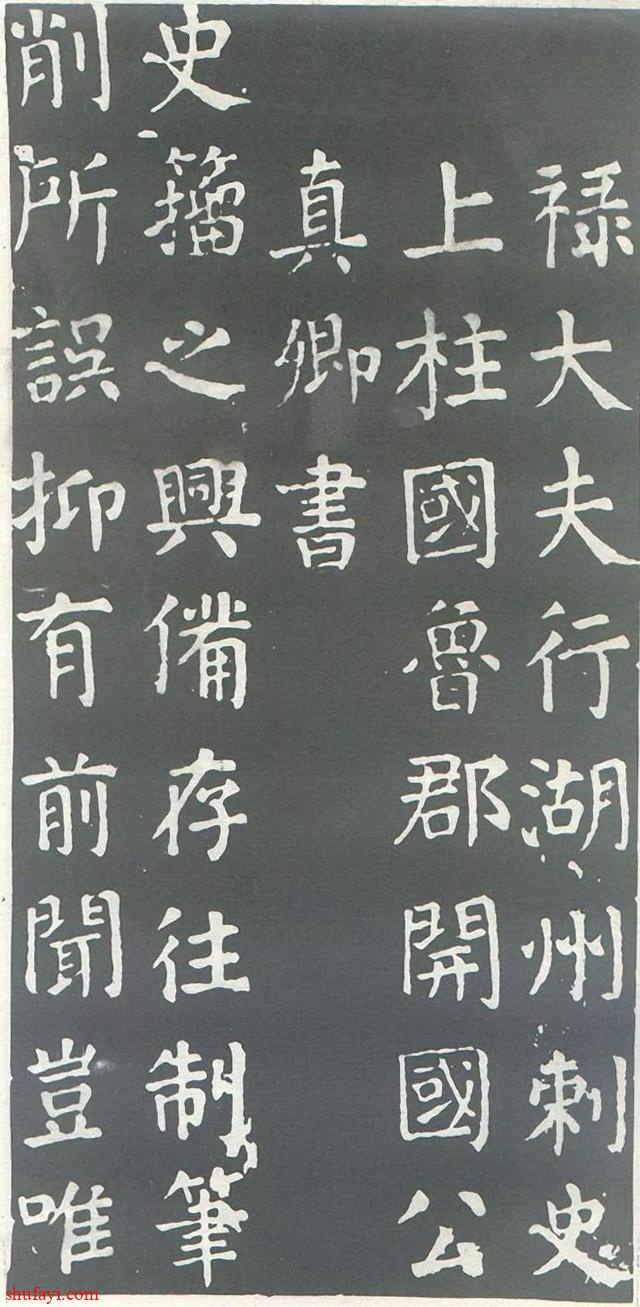 禄大夫行湖州刺史
上柱國魯郡開國公
真卿書
史籀之興備存往制筆
削所誤抑有前聞豈唯
shufayi.com